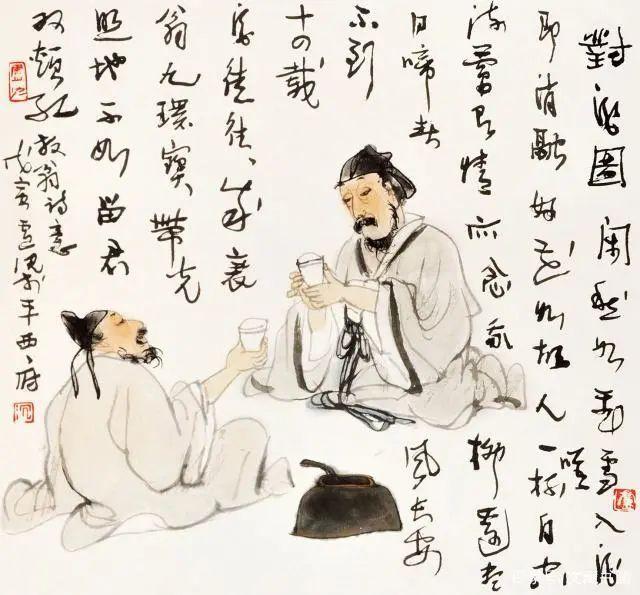 對酒圖 閑愁如飛雪入酒
即消融好花如故人一咲杯自空
流鶯有情亦念我柳邊盡
日啼春風長安
不到
十四載
酒徒往、成衰
翁九環寶帶光
照地不如留君
双頰紅 放翁诗意
戊寅盧沉於平西府